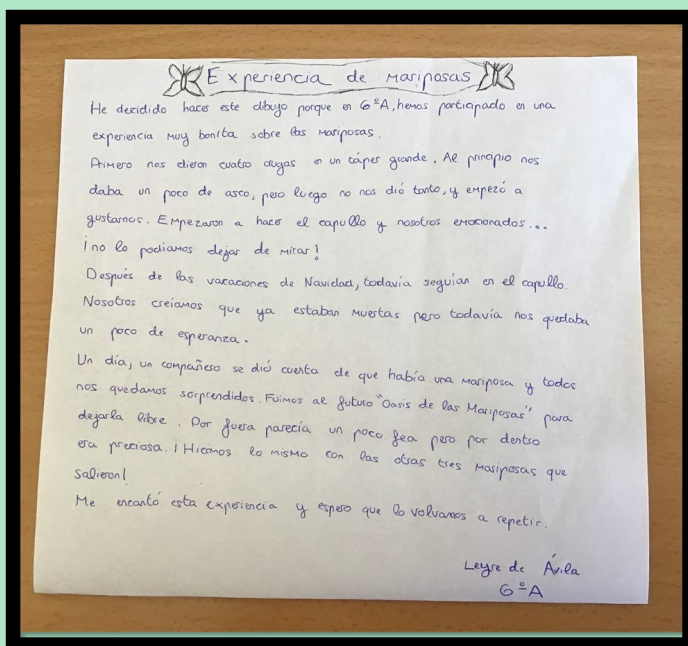 Experiencia de Mariposas
He decidido hacer este dibujo porque en 6ºA, hemos participado en una
experiencia muy bonita sobre las mariposas.
Primero nos dieron cuatro orugas en un táper grande. Al principio nos
daba un poco de asco, pero luego no nos dió tanto, y empezó a
gustarnos. Empezaron a hacer el capullo y nosotros emocionados...
¡no lo podiamos dejar de mirar!
Después de las vacaciones de Navidad, todavía seguían en el capullo.
Nosotros creíamos que ya estaban muertas pero todavía nos quedaba
un poco de esperanza.
Un día, un compañero se dió cuenta de que había una mariposa y todos
nos quedamos sorprendidos. Fuimos al futuro "Oasis de las Mariposas" para
dejarla libre. Por fuera parecía un poco fea pero por dentro
era preciosa. ¡Hicimos lo mismo con las otras tres mariposas que
salieron!
Me encantó esta experiencia y espero que lo volvamos a repetir.
Leyre de Ávila
6ºA